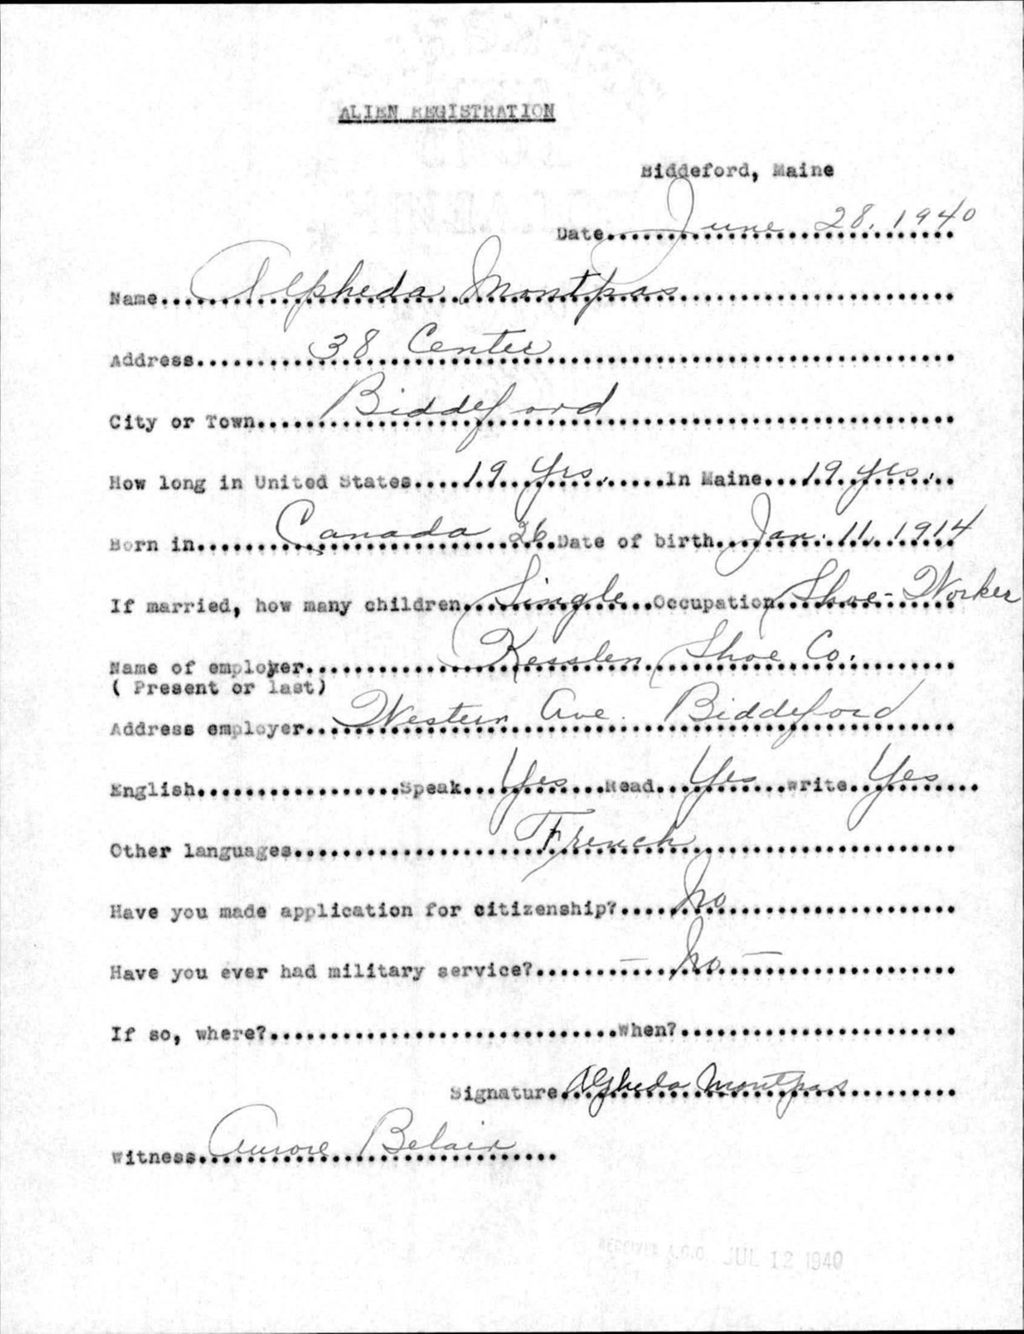 ALIEN REGISTRATION
Biddeford, Maine
Date June 28, 1940
Name Alpheda Montpas
Address 38 Center
City or Town Biddeford
How long in United States 19 Yrs. In Maine 19 yrs.
Born in Canada 26 Date of birth Jan. 11, 1914
If married, how many children Single Occupation Shoe-Worker
Name of employer Kesslen Shoe Co.
( Present or last)
Address employer Western Ave. Biddeford
English Speak Yes Read Yes Write Yes
Other languages French
Have you made application for citizenship? No
Have you ever had military service? — No —
If so, where? When?
Signature Alpheda Montpas
Witness Aurore Belair
RECEIVED A.G.O. JUL 12 1940